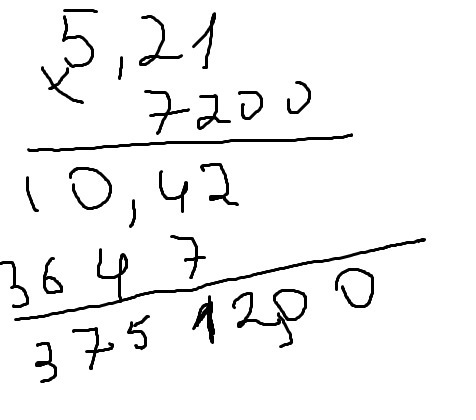 5,21
× 7200
10,42
3647
375120,0